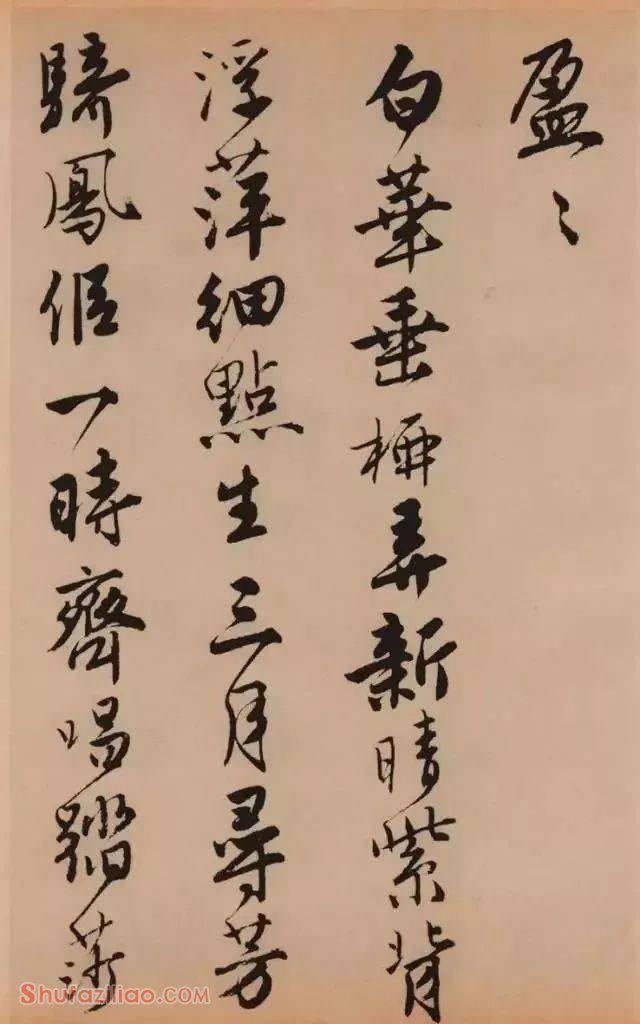 盈〻
白華垂柳弄新晴紫背
浮萍細點生三月尋芳
騎鳳侶一時齊唱踏莎
Shufaziliao.COM